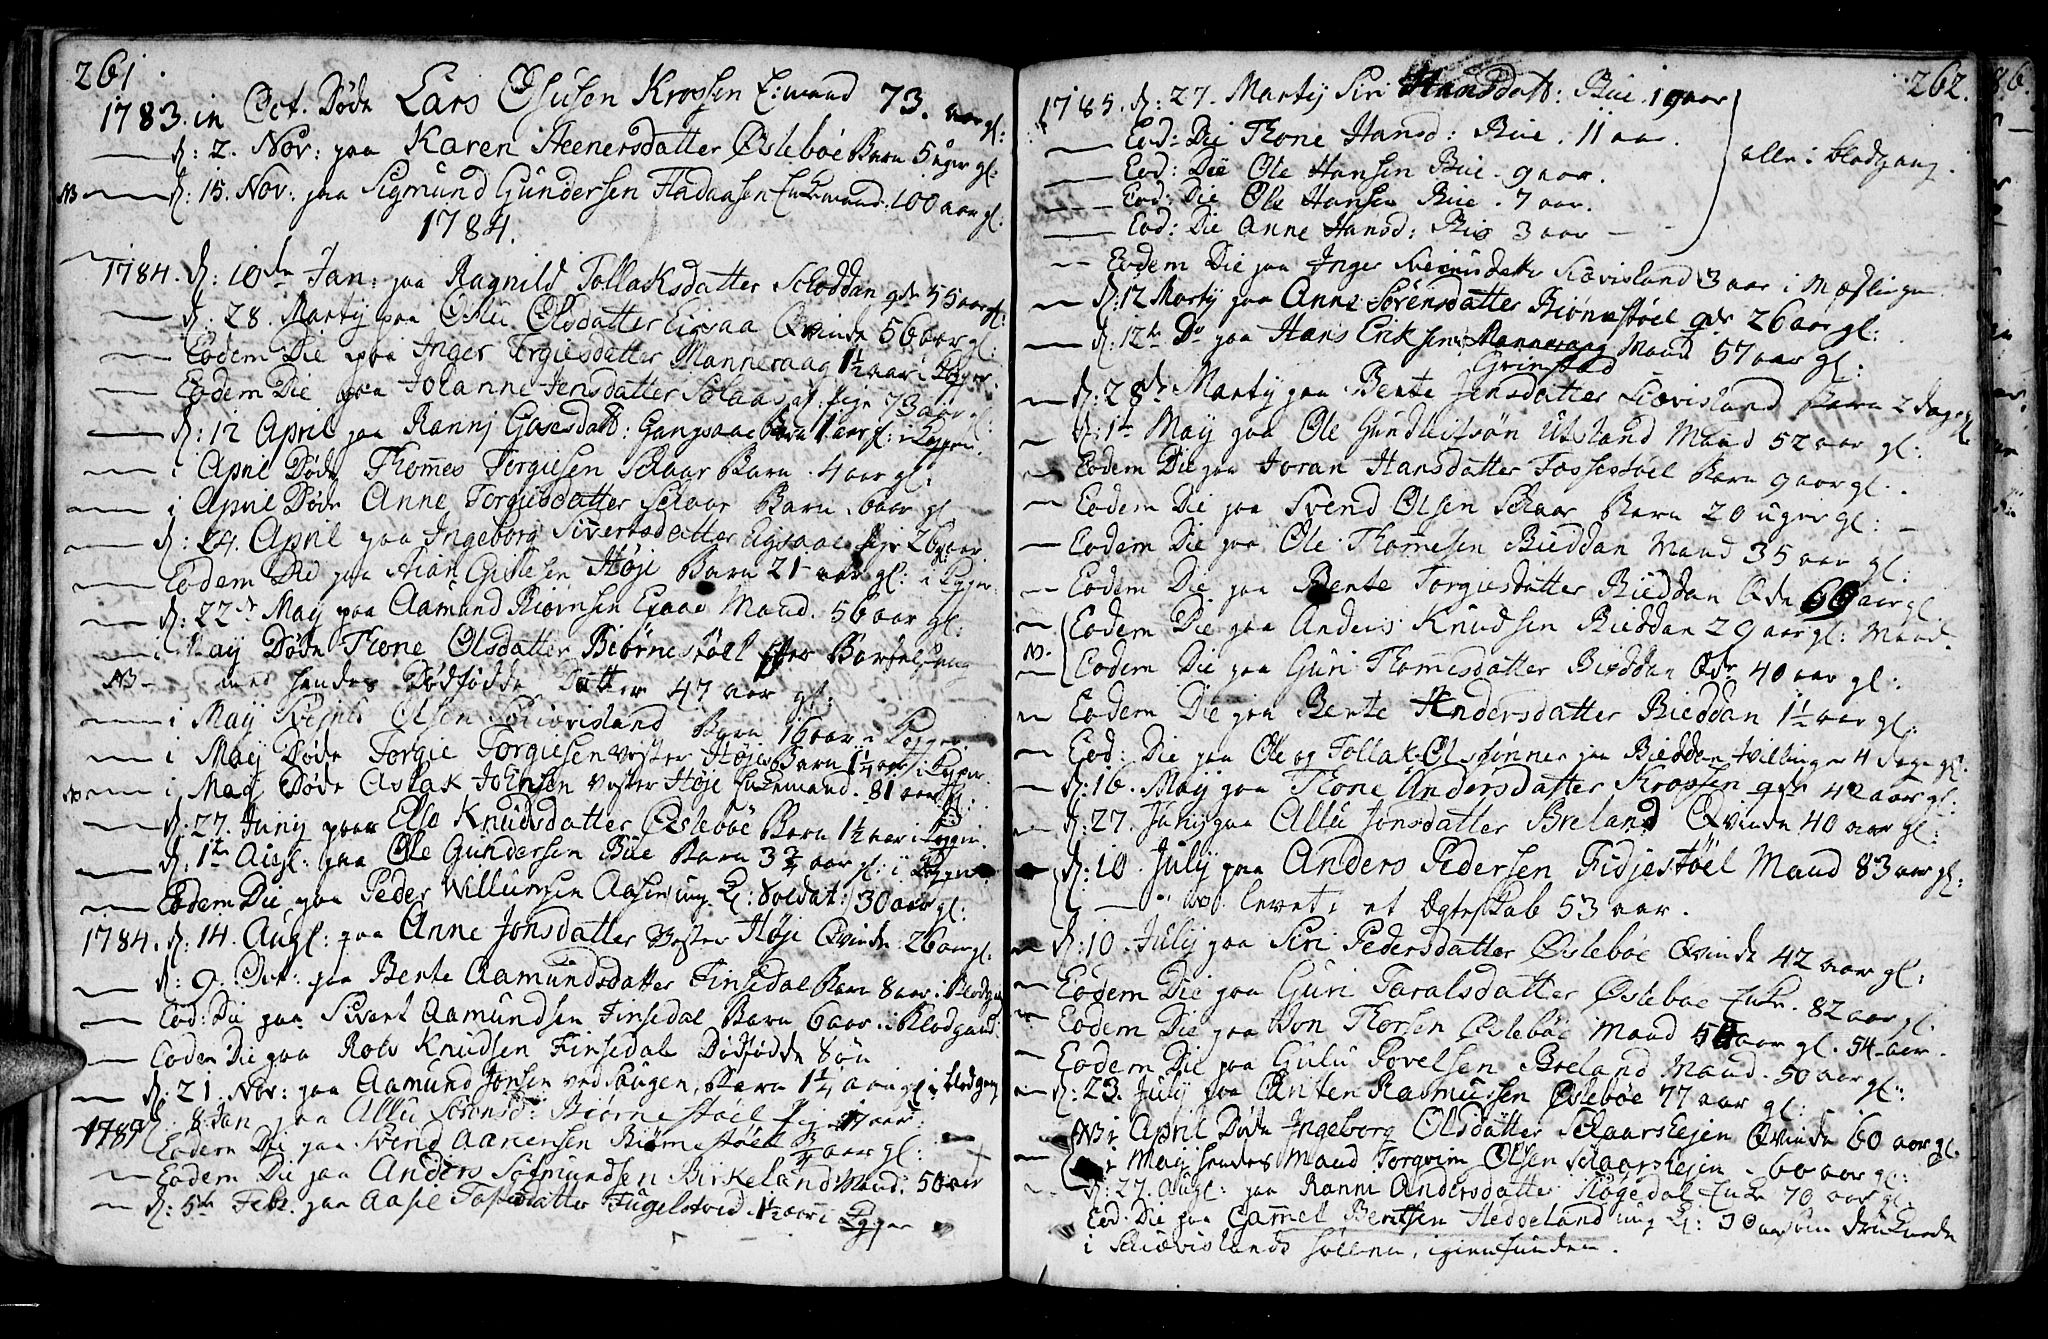 261
1783. in Oct. Døde Lars Osulsen Krossen E:mand 73. aar gl:
d: 2. Nov: paa Karen Steenersdatter Øslebøe Barn 5 uger gl:
NB d: 15. Nov: paa Sigmund Gundersen Fladaasen Enkemand 100 aar gl:
1784.
1784. d: 10de Jan: paa Ragnild Tollaksdatter Schoddan gde 55 aar gl:
d. 28. Martij paa Oslu Olsdatter Eigsaa Qvinde 56 aar gl:
Eodem Die paa Inger Torgiesdatter Manneraag 1½ aar i Kopper:
Eodem Die paa Johanne Jensdatter pige 73 aar gl:
d: 12 April paa Rannj Gangsaae Barn 1 aar gl: i Koppern.
i April Døde Thomes Torgiesen Schaar Barn 4 aar gl:
i April Døde Anne Torgiesdatter Schaar Barn 6 aar gl
d: 24. April paa Ingeborg Sivertsdatter Eigsaae pige 26 aar
Eodem Die paa Aian Høje Barn 21 gl: i Kopper:
d: 22de Maij paa Aamund Biørnsen Mand 56 aar gl:
i Maij Døde Thone Olsdatter Biørnestøel Barselseng
NB – med hendes Dødfødde Datter 47 aar gl:
i Maij Olsen Schiævisland Barn 16 aar i Kopper
i Maij Døde Torgie Torgiesen Vester Høje Barn 1¼ aar i Kopper
NB i Maij Døde Aslak Vester Høje Enkemand. 81 aar gl:
d: 27. Junij paa Else Knudsdatter Øslebøe Barn 1½ aar i Koppern.
d. 1te Augl: paa Ole Gundersen Bue Barn 3 aar gl: i
Eodem Die paa Peder Villumsen ung K: Soldat: 30 aar gl:
1784. d: 14. Augl: paa Anne Jonsdatter Vester Høje Qvinde 26 aar gl:
d: 9. Oct: paa Berte Aamundsdatter Finsdal Barn 8 aar i Blodgan
Eod: Die paa Sivert Aamundsen Finsedal Barn 6 aar i Blodgand:
Eodem Die paa Rolv Knudsen Finsedal Dødfødde Søn
d: 21. Nov: paa Aamund Jonsen ved Barn 1¼ aar gl i blodgang
d. 8 Jan paa Allu Sørensd: Biørnestøel pige 17 aar:
Eodem Die paa Svend Aanensen Biørnestøel aar gl:
Eodem Die paa Anders Birkeland Mand: 50 aar
d: 5te Febr. paa Aasel Fugelstved 1½ aar i Kopper
262.
1785. d: 27. Martij Siri Hansdatt: Bue 19 aar
Eod: Die Thone Hansd: Bue 11 aar.
Eod: Die Ole Hansen Bue 9 aar.
Eod: Die Ole Hansen Bue 7 aar.
Eod: Die Anne Hansd: Bue 3 aar
alle i blodgang
Eodem Die paa Inger Scævisland 3 aar i Mæslinger
d: 12 Martij paa Anne Sørensdatter Biørnestøel gde 26 aar gl:
d: 12te Do paa Hans Eriksen Manneraag Mand 57 aar gl:
Grimstad
d: 28de Martij paa Bente Jensdatter Scævisland Barn 2 dage gl
d: 1te Maij paa Ole Gundleifsøn Utsland Mand 52 aar gl:
Eodem Die paa Joran Hansdatter Fossestøel Barn 9 aar gl.
Eodem Die paa Svend Olsen Schaar Barn 20 uger gl:
Eodem Die paa Ole Thomesen Bieddan Mand 35 aar gl:
Eodem Die paa Bente Torgiesdatter Bieddan Qde 66 aar gl.
Eodem Die paa Anders Knudsen Bieddan 29 aar gl: Mand
NB. Eodem Die paa Guri Thomesdatter Bieddan Qde 40 aar gl:
Eodem Die paa Bente Andersdatter Bieddan 1½ aar gl:
Eod: Die paa Ole og Tollak Olssønner paa Bieddan tvillinger 4 dage gl.
d: 16. Maij paa Thone Andersdatter Krossen gde 42 aar gl:
d: 27. Junij paa Allu Jonsdatter Breland Qvinde 40 aar gl:
d: 10 July paa Anders Pedersen Fidjestøel Mand 83 aar gl:
levet i et Egteskab 53 aar.
d: 10. July paa Siri Pedersdatter Øslebøe Qvinde 42 aar gl:
Eodem Die paa Guri Taralsdatter Øslebøe Enke. 82 aar gl.
Eodem Die paa Jon Thorsen Øslebøe Mand aar gl. 54 aar.
Eodem Die paa Gulu Povelsen Breland Mand 50 aar gl:
d: 23. July paa Anten Rasmussen Øslebøe 77 aar gl:
NB i April Døde Ingeborg Olsdatter Schaarshejen Qvinde 60 aar gl.
i Maij hendes Mand Torgrim Olsen Schaarshejen 60 aar gl:
d: 27. Augl: paa Ranni Andersdatter Enke 70 aar gl:
Eod: Die paa Gammel Hedseland ung K: 30 aar som druknede
i Schiævislands igienfunden.